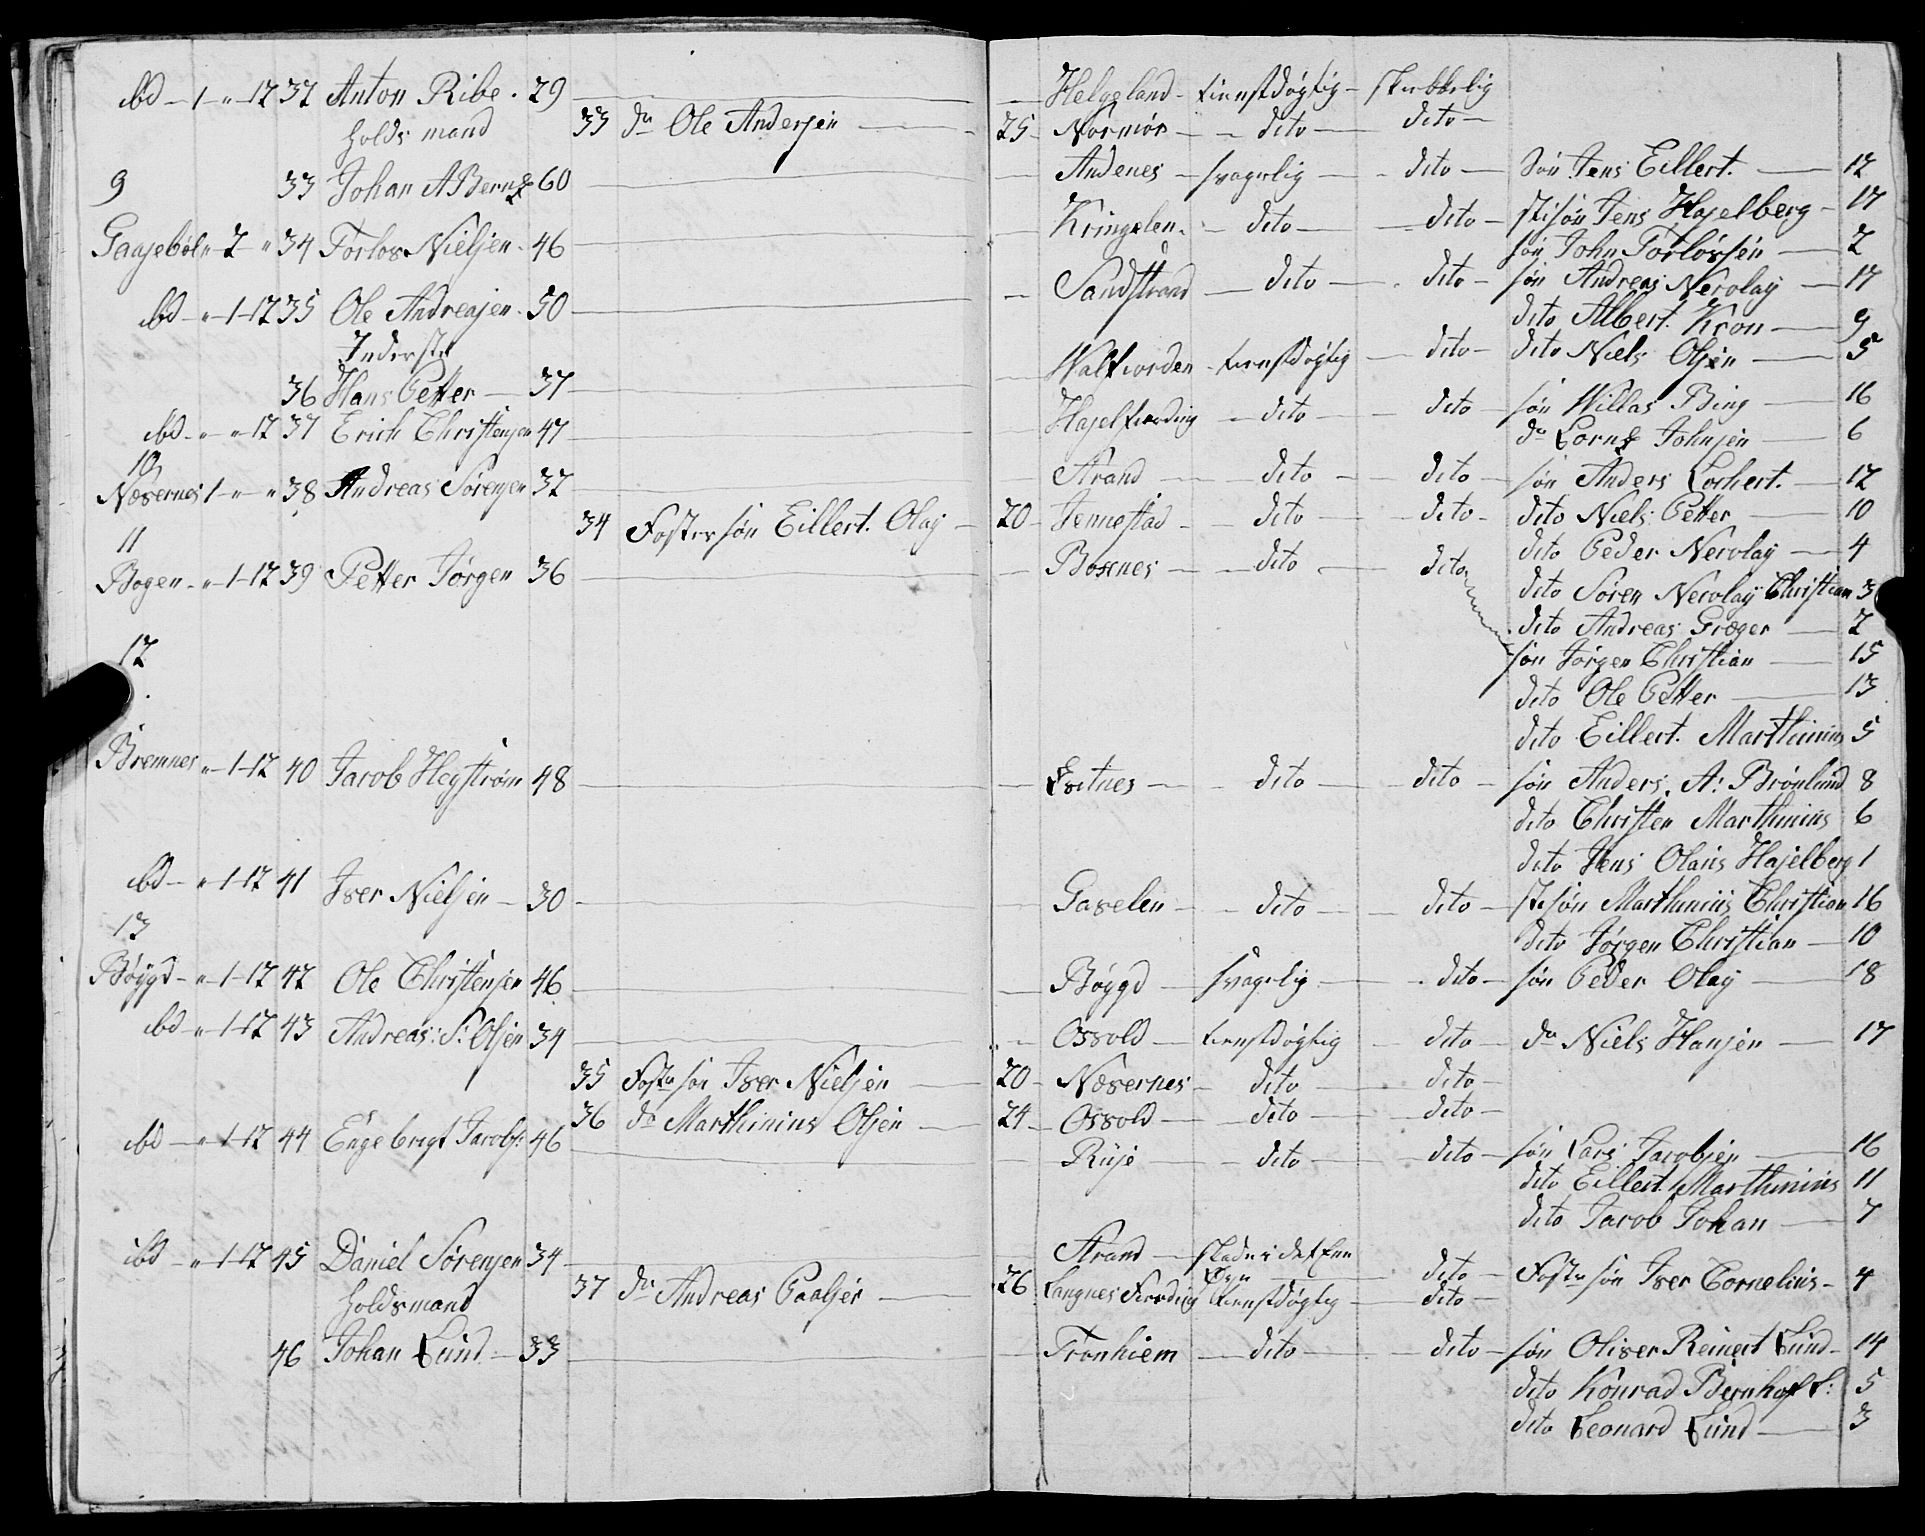 ibd — 1 " — 12 32 Anton Ribe . 29 — Helgeland — tienstdøgtig — skikkelig
holds mand 33 do Ole Andersen — 25 — Normør — dito — dito —
9 33 Johan A Berntz 60 — Andenes — svagelig — dito — Søn Jens Eillert. — 12
Gaasebøl " 2 " 34 Torlof Nielsen . 46 — Kringelen . — dito — dito — stisøn Jens Hagelberg — 17
søn John Torløfsen — 2
ibd — " 1 — 12 35 Ole Andreasen . 50 — Sandstrand — dito — dito — søn Andreas Nicolay — 17
Inderste dito Albert Kron — 9
36 Hans Petter — 37 — Walfiorden — tienstdøgtig — dito — dito Niels Olsen — 5
ibd — " " 12 37 Erich Christensen 47 — Hasselfierding — dito — dito — søn Willas Bing — 16
do Cornl Johnsen — 6
10
Næsernes 1 — " " 38 Andreas Sørensen 32 — Strand — dito — dito — søn Anders Lorhert. — 12
34 Fostersøn Eillert. Olay — 20 — Jennestad — dito — dito — dito Niels Petter — 10
11 dito Peder Nicolay — 4
Bogen — " 1 — 12 39 Petter Jørgen 36 — Boxnes — dito — dito dito Søren Nicolay Christian 3
dito Andreas Græger — 2
12 søn Jørgen Christian — 15
dito Ole Petter — 13
dito Eillert. Marthinius 5
Bremnes " — 1 — 12 40 Jacob Hegstrøm 48 — Exitnes — dito — dito — søn Anders. A: Brønlund 8
dito Christen Marthinius 6
dito Jens Olaus Haselberg 1
ibd — " 1 — 12 41 Iver Nielsen — 30 — Gavelen — dito — dito — stisøn Marthinius Christian 16
13 dito Jørgen Christian — 10
Bøygd — " 1 — 12 42 Ole Christensen 46 — Bøygd — svagelig — dito — søn Peder Olay — 18
ibd " 1 — 12 43 Andreas: S: Olsen 34 — Osvold — tienstdøgtig — dito — do Niels Hansen — 17
35 Fostr søn Iver Nielsen — 20 — Næsernes — dito — dito —
36 do Marthinius Olsen — 24 — Osvold — dito — dito —
ibd — " 1 — 12 44 Engebregt Jacobs: 46 — Rüse — dito — dito — søn Lars Jacobsen — 16
dito Eillert Marthinius 11
dito Jacob Johan — 7
ibd " 1 — 12 45 Daniel Sørensen 34 — Strand — skade i det Ene Øye — dito — Fostr søn Iver Cornelius — 4
holdsmand 37 do Andreas Paalsen — 26 Langnes Fierding tienstdøgtig — dito —
46 Johan Lund — 33 — Tronhiem — dito — dito — søn Oliver Reinert Lund — 14
dito Konrad Bernhoft L: 5
dito Leonard Lund — 3